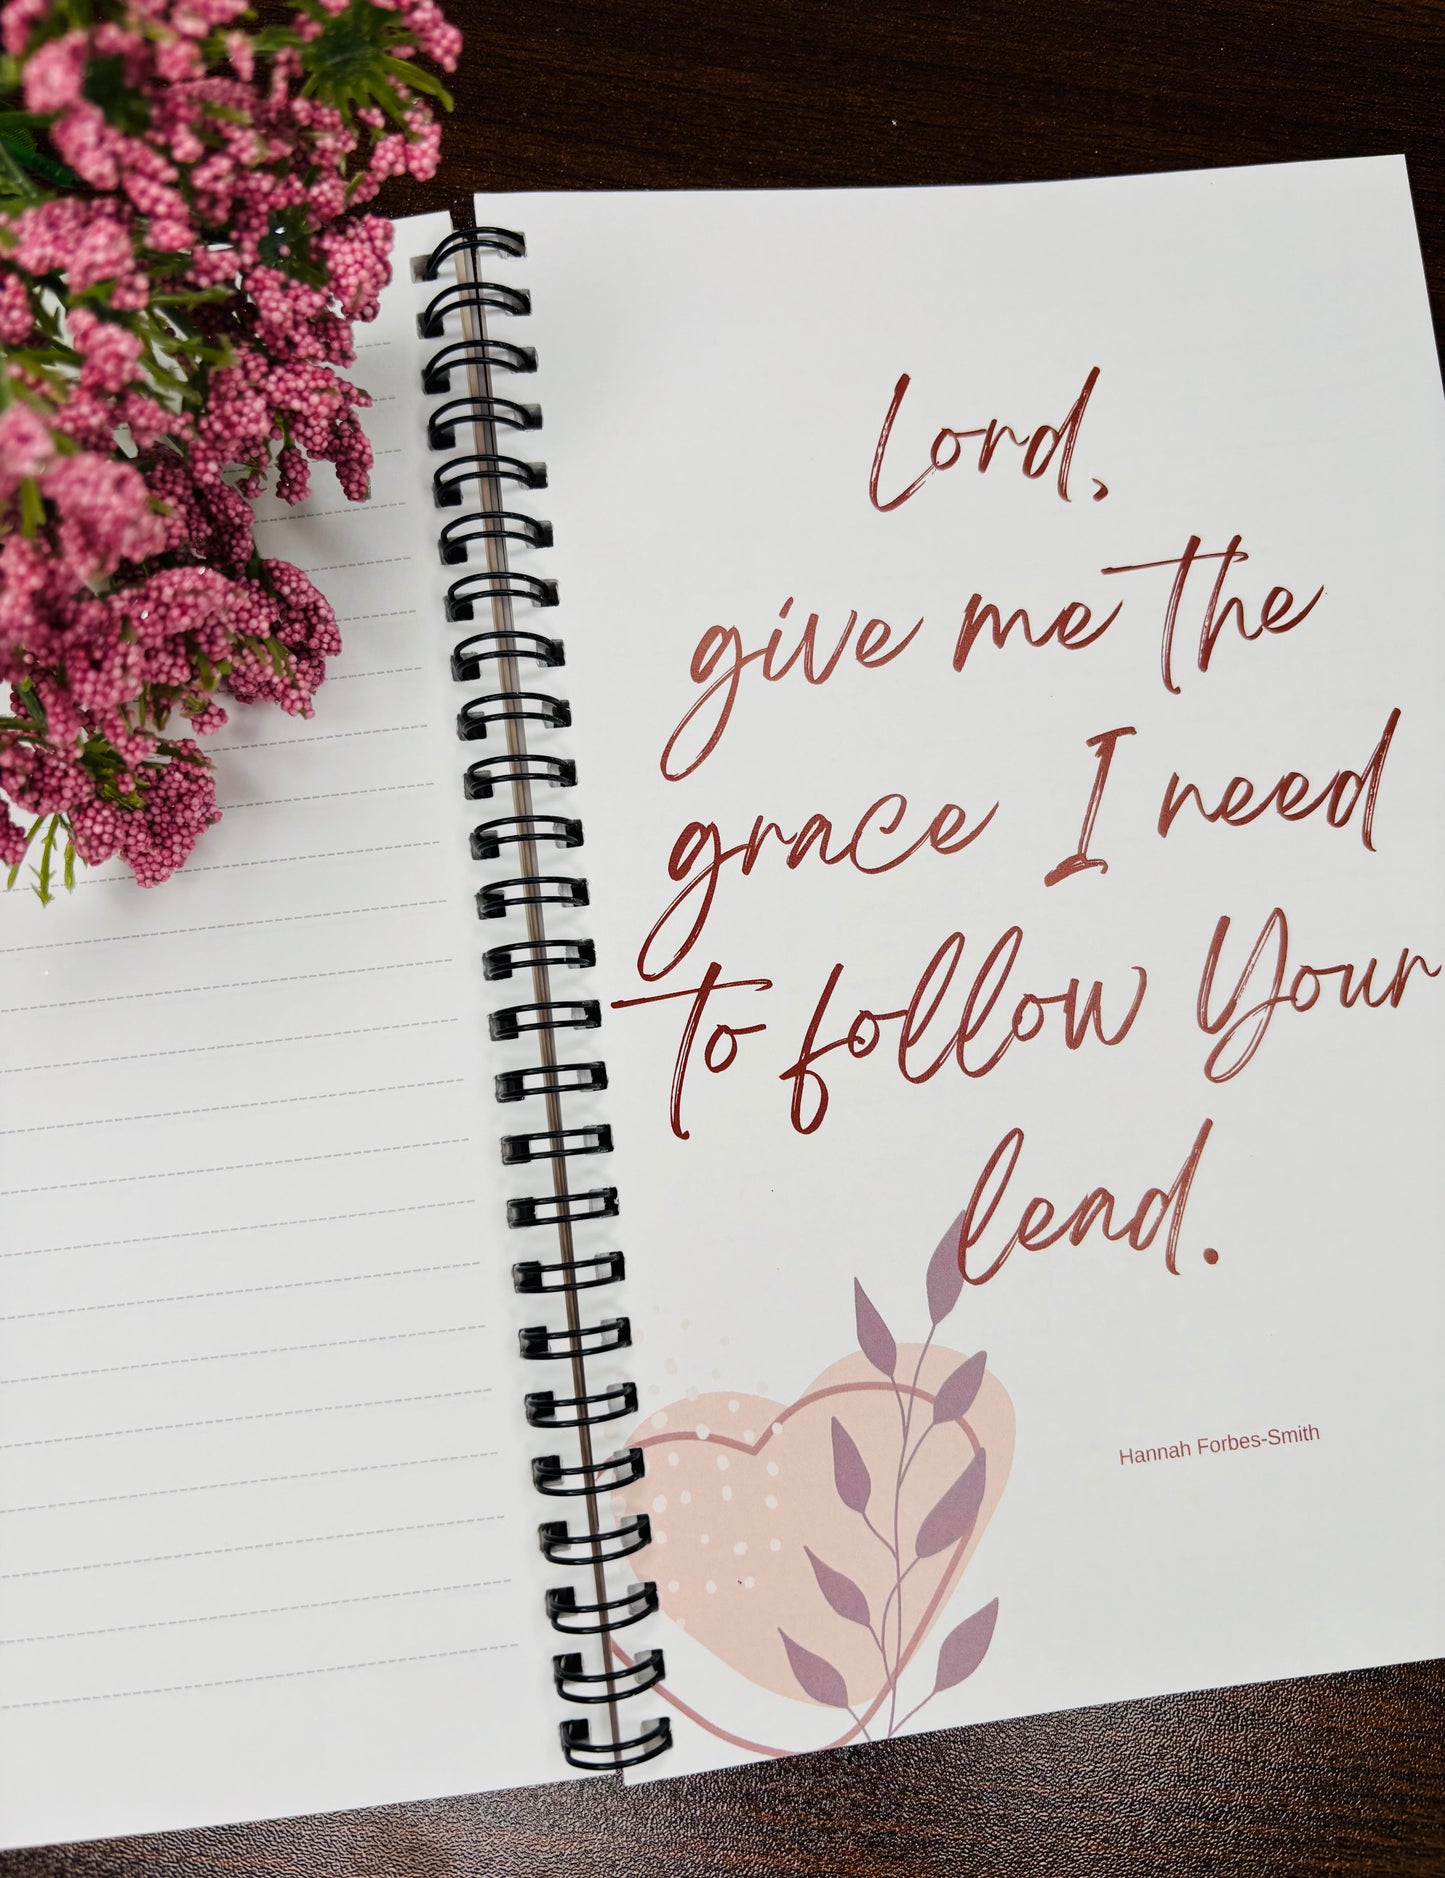 Lord,
give me the
grace I need
to follow Your
lead.
Hannah Forbes-Smith